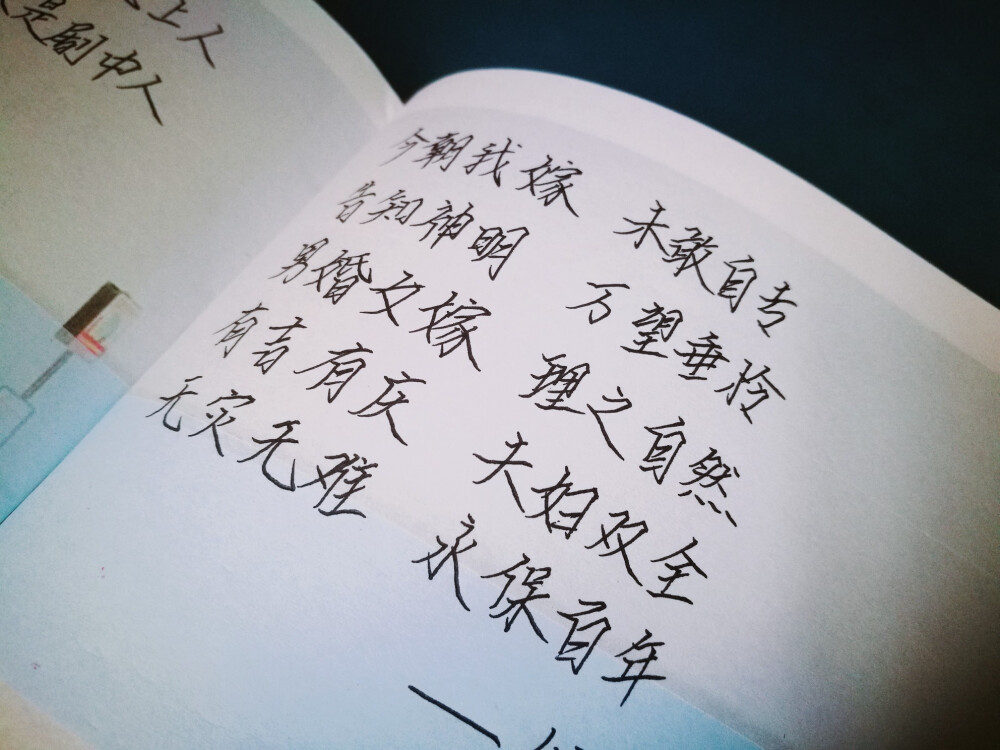 上人
是剧中人
今朝我嫁 未敢自专
告知神明 万望垂怜
男婚女嫁 理之自然
有吉有庆 夫妇双全
无灾无难 永保百年